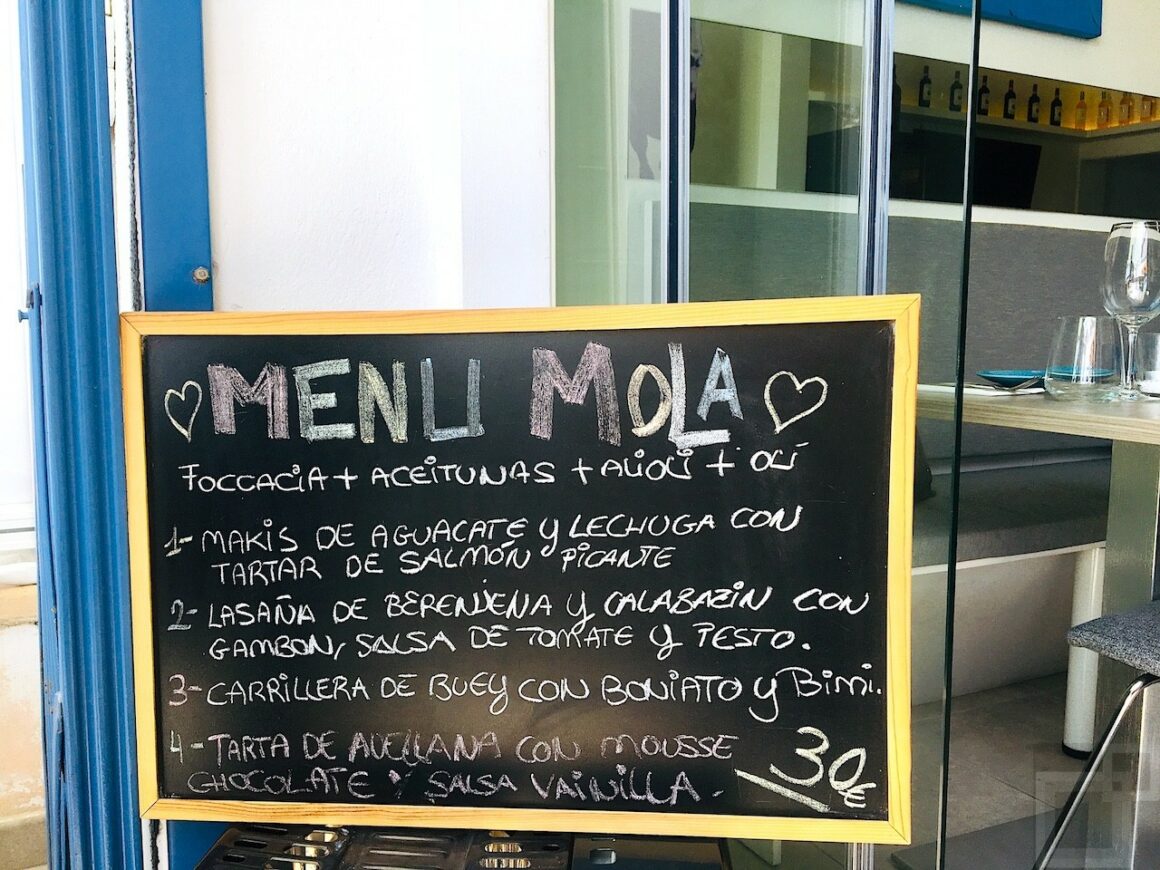 MENU MOLA
FOCCACIA + ACEITUNAS + ALIOLI + OLI
1- MAKIS DE AGUACATE Y LECHUGA CON
TARTAR DE SALMÓN PICANTE
2- LASAÑA DE BERENJENA Y CALABAZIN CON
GAMBON, SALSA DE TOMATE Y PESTO.
3- CARRILLERA DE BUEY CON BONIATO Y BIMI.
4- TARTA DE AVELLANA CON MOUSSE
CHOCOLATE Y SALSA VAINILLA.
30€